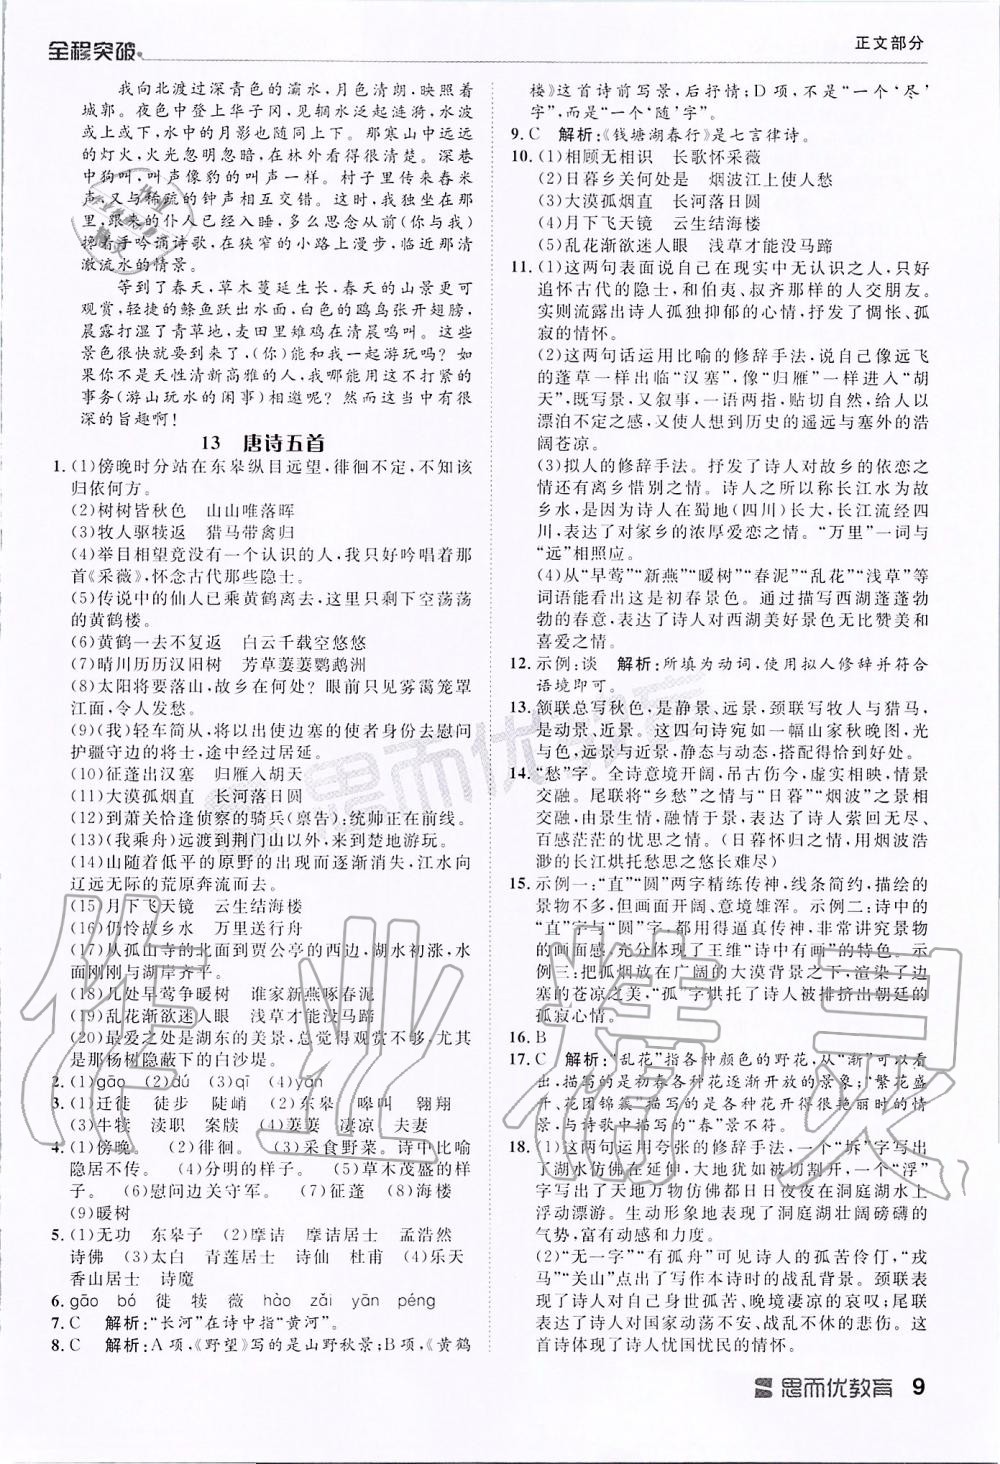 全程突破
正文部分
我向北渡过深青色的灞水，月色清朗，映照着
城郭。夜色中登上华子冈，见辋水泛起涟漪，水波
或上或下，水中的月影也随同上下。那寒山中远远
的灯火，火光忽明忽暗在林外看得很清楚。深巷
中狗叫，叫声像豹的叫声一样。村子里传来舂米
声，又与稀疏的钟声相互交错。这时，我独坐在那
里，跟来的仆人已经入睡，多么思念从前(你与我)
搀着手吟诵诗歌，在狭窄的小路上漫步，临近那清
澈流水的情景。
等到了春天，草木蔓延生长，春天的山景更可
观赏，轻捷的鲦鱼跃出水面，白色的鸥鸟张开翅膀，
晨露打湿了青草地，麦田里雉鸡在清晨鸣叫。这些
景色很快就要到了，(你)能和我一起游玩吗？如
果你不是天性清新高雅的人，我哪能用这不打紧的
事务(游山玩水的闲事)相邀呢？然而这当中有很
深的旨趣啊！
13　唐诗五首
1. (1)傍晚时分站在东皋纵目远望，徘徊不定，不知该
归依何方。
(2)树树皆秋色　山山唯落晖
(3)牧人驱犊返　猎马带禽归
(4)举目相望竟没有一个认识的人，我只好吟唱着那
首《采薇》，怀念古代那些隐士。
(5)传说中的仙人已乘黄鹤离去，这里只剩下空荡荡
的黄鹤楼。
(6)黄鹤一去不复返　白云千载空悠悠
(7)晴川历历汉阳树　芳草萋萋鹦鹉洲
(8)太阳将要落山，故乡在何处？眼前只见雾霭笼罩
江面，令人发愁。
(9)(我)轻车简从，将以出使边塞的使者身份去慰问
护疆守边的将士，途中经过居延。
(10)征蓬出汉塞　归雁入胡天
(11)大漠孤烟直　长河落日圆
(12)到萧关恰逢侦察的骑兵(禀告)：统帅正在前线。
(13)(我乘舟)远渡到荆门山以外，来到楚地游玩。
(14)山随着低平的原野的出现而逐渐消失，江水向
辽远无际的荒原奔流而去。
(15)月下飞天镜　云生结海楼
(16)仍怜故乡水　万里送行舟
(17)从孤山寺的北面到贾公亭的西边，湖水初涨，水
面刚刚与湖岸齐平。
(18)几处早莺争暖树　谁家新燕啄春泥
(19)乱花渐欲迷人眼　浅草才能没马蹄
(20)最爱之处是湖东的美景，总觉得观赏不够，尤其
是那杨树隐蔽下的白沙堤。
2. (1)gāo　(2)dú　(3)qī　(4)yān
3. (1)迁徙　徒步　陡峭　(2)东皋　嗥叫　翱翔
(3)牛犊　渎职　案牍　(4)萋萋　凄凉　夫妻
4. (1)傍晚。　(2)徘徊。　(3)采食野菜。诗中比喻
隐居不传。　(4)分明的样子。　(5)草木茂盛的样
子。　(6)慰问边关守军。　(7)征蓬　(8)海楼
(9)暖树
5. (1)无功　东皋子　(2)摩诘　摩诘居士　孟浩然
诗佛　(3)太白　青莲居士　诗仙　杜甫　(4)乐天
香山居士　诗魔
6. gāo　bó　徙　犊　薇　hào　zǎi　yān　péng
7. C　解析：“长河”在诗中指“黄河”。
8. C　解析：A项，《野望》写的是山野秋景；B项，《黄鹤
楼》这首诗前写景，后抒情；D项，不是“一个‘尽’
字”，而是“一个‘随’字”。
9. C　解析：《钱塘湖春行》是七言律诗。
10. (1)相顾无相识　长歌怀采薇
(2)日暮乡关何处是　烟波江上使人愁
(3)大漠孤烟直　长河落日圆
(4)月下飞天镜　云生结海楼
(5)乱花渐欲迷人眼　浅草才能没马蹄
11. (1)这两句表面说自己在现实中无认识之人，只好
追怀古代的隐士，和伯夷、叔齐那样的人交朋友。
实则流露出诗人孤独抑郁的心情，抒发了惆怅、孤
寂的情怀。
(2)这两句话运用比喻的修辞手法，说自己像远飞
的蓬草一样出临“汉塞”，像“归雁”一样进入“胡
天”，既写景，又叙事，一语两指，贴切自然，给人以
漂泊不定之感，又使人想到历史的遥远与塞外的浩
阔苍凉。
(3)拟人的修辞手法。抒发了诗人对故乡的依恋之
情还有离乡惜别之情。诗人之所以称长江水为故乡
水，是因为诗人在蜀地(四川)长大，长江流经四
川，表达了对家乡的浓厚爱恋之情。“万里”一词与
“远”相照应。
(4)从“早莺”“新燕”“暖树”“春泥”“乱花”“浅草”等
词语能看出这是初春景色。通过描写西湖蓬蓬勃
勃的春意，表达了诗人对西湖美好景色无比赞美和
喜爱之情。
12. 示例：谈　解析：所填为动词，使用拟人修辞并符合
语境即可。
13. 颔联总写秋色，是静景、远景，颈联写牧人与猎马，
是动景、近景。这四句诗宛如一幅山家秋晚图，光
与色，远景与近景，静态与动态，搭配得恰到好处。
14. “愁”字。全诗意境开阔，吊古伤今，虚实相映，情景
交融。尾联将“乡愁”之情与“日暮”“烟波”之景相
交融，由景生情，融情于景，表达了诗人萦回无尽、
百感茫茫的忧思之情。(日暮怀归之情，用烟波浩
渺的长江烘托愁思之悠长难尽)
15. 示例一：“直”“圆”两字精练传神，线条简约，描绘的
景物不多，但画面开阔、意境雄浑。示例二：诗中的
“直”字与“圆”字，都用得逼真传神，非常讲究景物
的画面感，充分体现了王维“诗中有画”的特色。示
例三：把孤烟放在广阔的大漠背景之下，渲染了边
塞的苍凉之美，“孤”字烘托了诗人被排挤出朝廷的
孤寂心情。
16. B
17. C　解析：“乱花”指各种颜色的野花，从“渐”可以看
出，描写的是初春各种花逐渐开放的景象；“繁花盛
开、花团锦簇”描写的是各种花开得很艳丽的景象，
与诗歌中描写的“春”景不符。
18. (1)这两句运用夸张的修辞手法，一个“坼”字写出
了湖水仿佛在延伸，大地犹如被切割开，一个“浮”
字写出了天地万物仿佛都日日夜夜在洞庭湖水上
浮动漂游。生动形象地表现了洞庭湖壮阔磅礴的
气势，富有动感和力度。
(2)“无一字”“有孤舟”可见诗人的孤苦伶仃，“戎
马”“关山”点出了写作本诗时的战乱背景。颈联
表现了诗人对自己身世孤苦、晚境凄凉的哀叹；尾联
表达了诗人对国家动荡不安、战乱不休的悲伤。这
首诗体现了诗人忧国忧民的情怀。
思而优教育　9
思而优教育
作业精灵